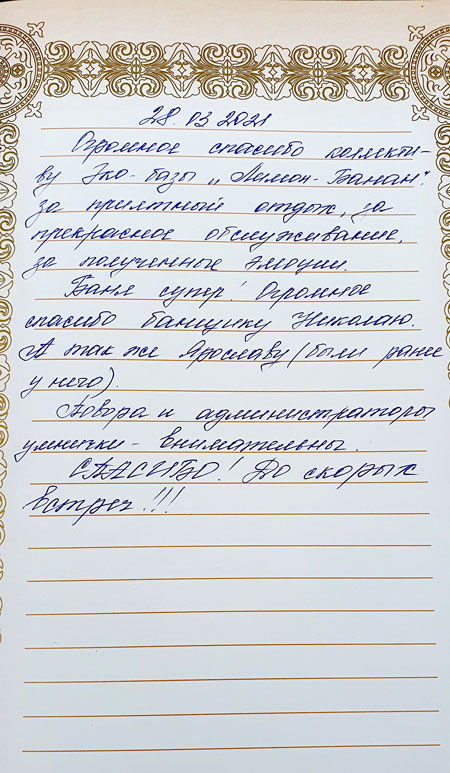 28.03 2021
Огромное спасибо коллекти-
ву Эко-базы „Лемон-Банан".
за приятный отдых, за
прекрасное обслуживание,
за полученные эмоции.
Баня супер! Огромное
спасибо банщику Николаю.
А так же Ярославу (были ранее
у него).
Повора и администраторы
умнички - внимательны.
СПАСИБО! До скорых
встреч!!!